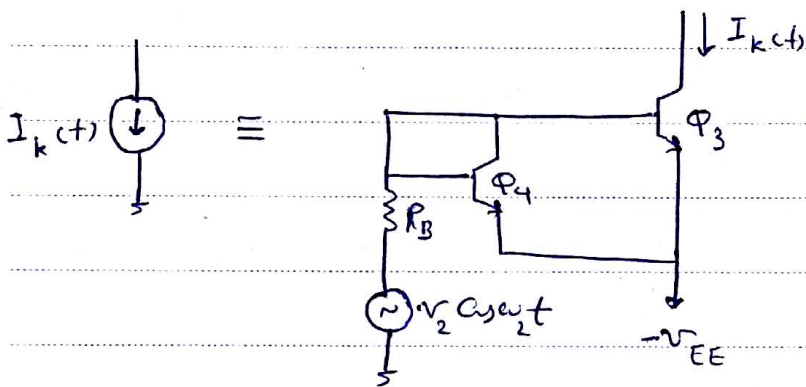 I_k(t)
I_k(t) ≡
Q_3
Q_4
R_B
~ v_2 Cos ω_2 t
-V_EE